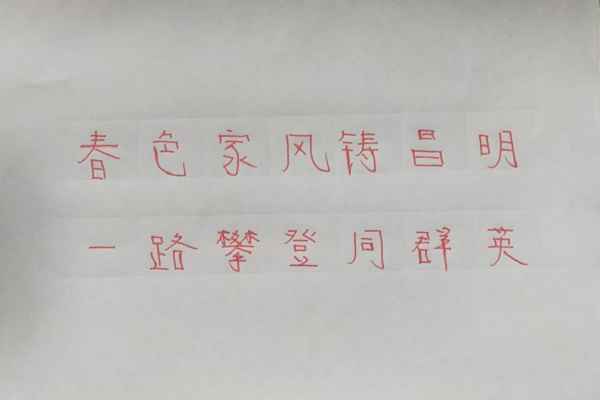 春色家风铸昌明
一路攀登同群英